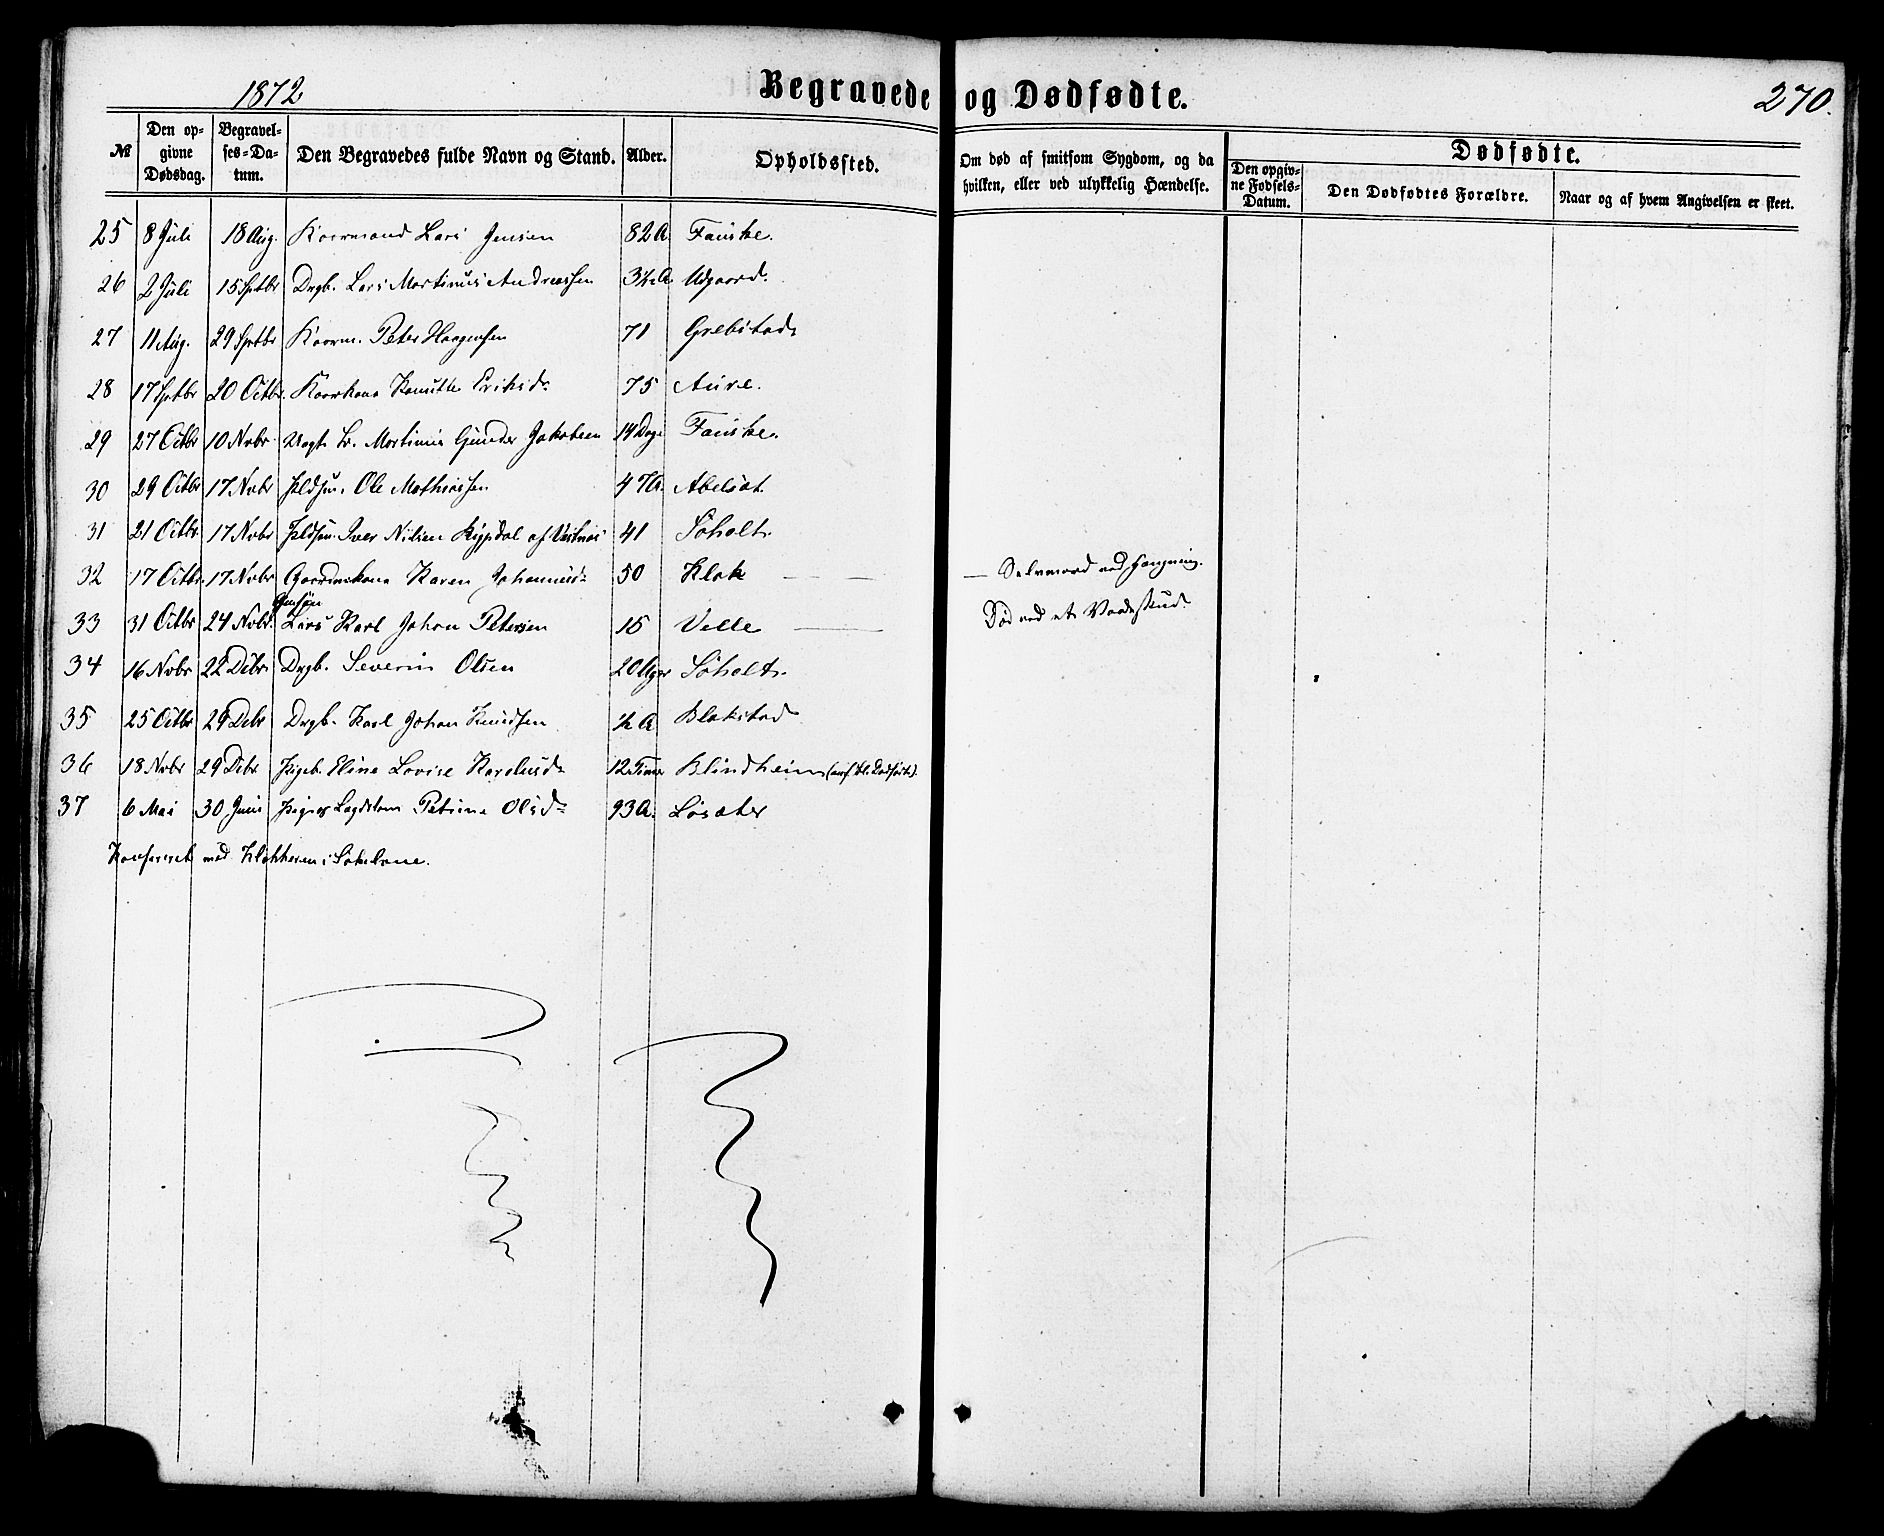 1872
Begravede og Dødfødte.
270.
№
Den opgivne Dødsdag.
Begravelses-Datum.
Den Begravedes fulde Navn og Stand.
Alder.
Opholdssted.
Om død af smitsom Sygdom, og da hvilken, eller ved ulykkelig Hændelse.
Dødfødte.
Den opgivne Fødsels-Datum.
Den Dødfødtes Forældre.
Naar og af hvem Angivelsen er skeet.
25 8 Juli 18 Aug. Kaarmand Lars Jensen 82 A. Fauske.
26 2 Juli 15 Septbr Drgb. Lars Martinus Andreassen Udgaard.
27 11 Aug. 29 Septbr Kaarm. Peter Haagensen 71 Grebstad
28 17 Septbr 20 Octbr. Kaarkone Knutte Eriksd. 75 Aure.
29 27 Octbr 10 Novbr. Martinus Gunder Jakobsen 14 Dage Fauske.
30 29 Octbr 17 Novbr Ole Mathiassen 47 A. Abelsæt.
31 21 Octbr. 17 Novbr Iver Nilsen Kypdal af Vestnæs 41 Søholt.
32 17 Octbr. 17 Novbr Gaardmskone Karen Johannesd. 50 Klok — — — Selvmord ved Hængning.
33 31 Octbr 24 Novbr. Lars Karl Johan Petersen 15 Velle — Død ved et Vaadeskud.
34 16 Novbr 22 Debr. Drgb. Severin Olsen 20 Uger Søholt.
35 25 Octbr 29 Debr Drgb. Karl Johan Knudsen ½ A Blakstad
36 18 Novbr 29 Debr. Pigeb. Eline Lovise Karolusd. 12 Timer Blindheim
37 6 Mai 30 Juni Petrine Olsd. 93 A. Løsæter
Konfereret med Klokkeren i Søkelvne.